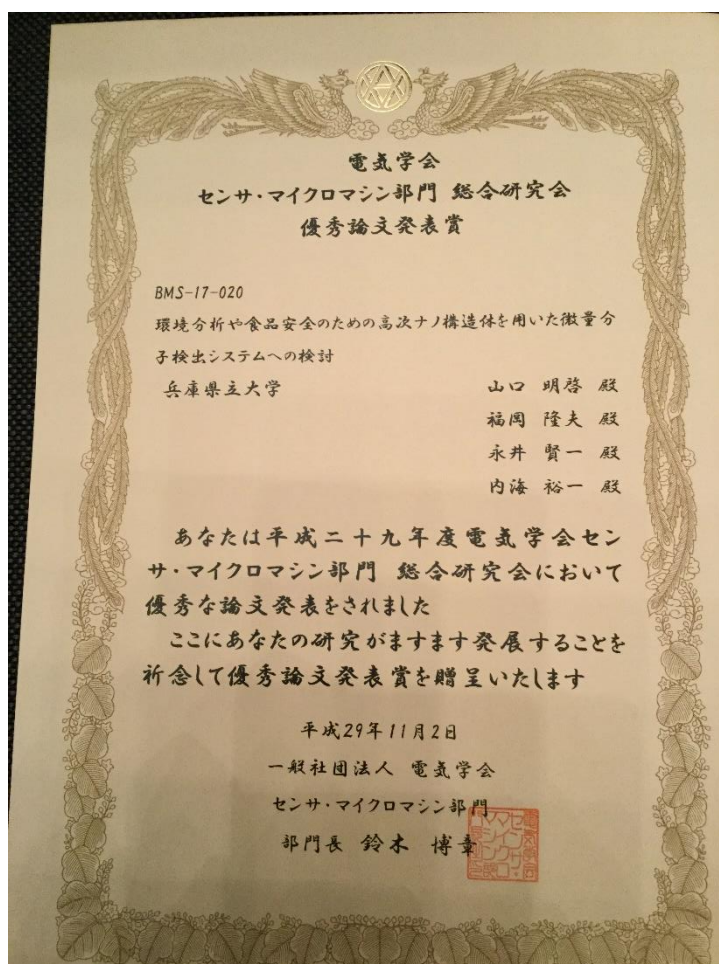 電気学会
センサ・マイクロマシン部門 総合研究会
優秀論文発表賞
BMS-17-020
環境分析や食品安全のための高次ナノ構造体を用いた微量分
子検出システムへの検討
兵庫県立大学 山口 明啓 殿
福岡 隆夫 殿
永井 賢一 殿
内海 裕一 殿
あなたは平成二十九年度電気学会セン
サ・マイクロマシン部門 総合研究会において
優秀な論文発表をされました
ここにあなたの研究がますます発展することを
祈念して優秀論文発表賞を贈呈いたします
平成29年11月2日
一般社団法人 電気学会
センサ・マイクロマシン部門
部門長 鈴木 博章